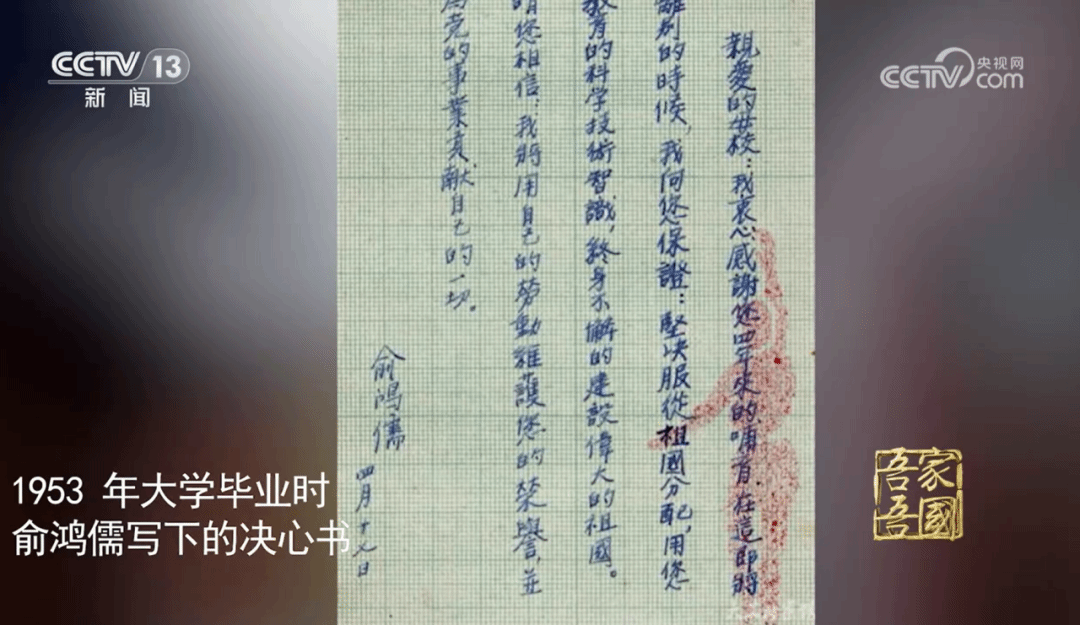 CCTV 13
新闻
CCTV 央视网
com
親愛的母校：我衷心感謝您四年來的哺育，在這即將
離别的時候，我向您保證：堅决服從祖國分配，用您
教育的科学技術智識，終身不懈的建設偉大的祖國。
請您相信：我將用自己的勞動維護您的榮譽，並
的事業貢献自己的一切。
俞鴻儒
四月十 日
1953 年大学毕业时
俞鸿儒写下的决心书
吾家
吾國